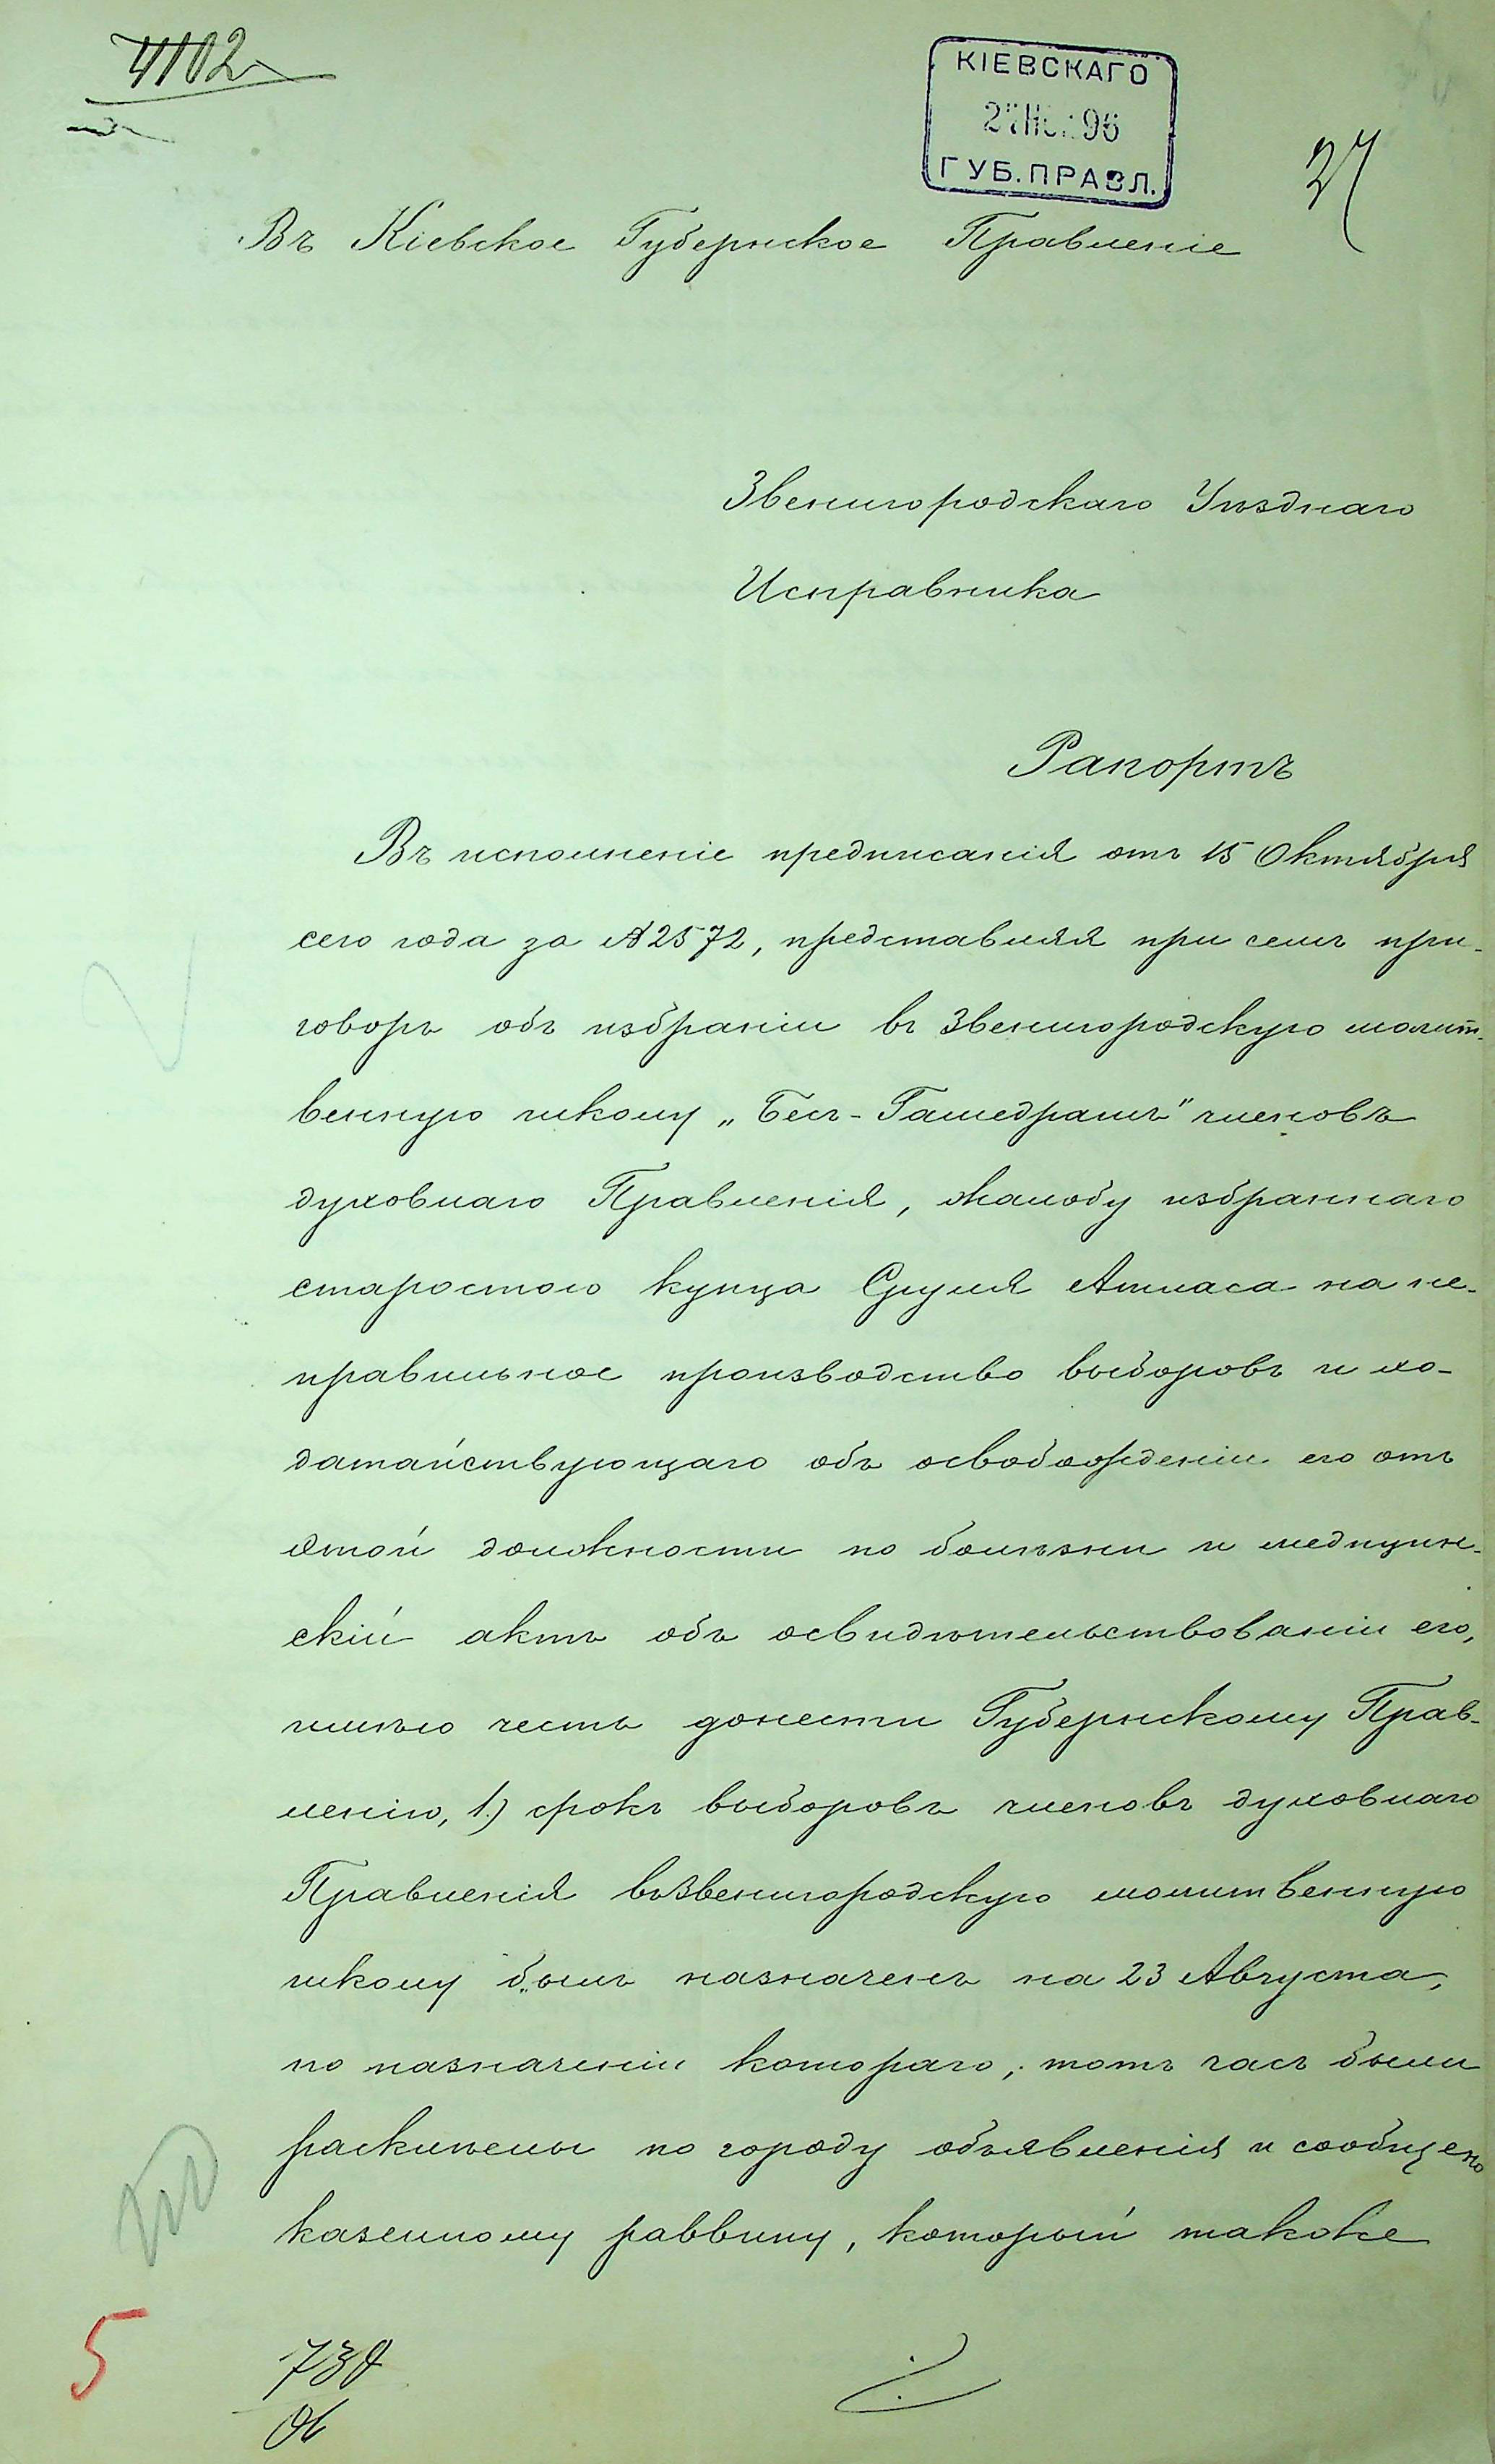 4102
КІЕВСКАГО
27 96
ГУБ.ПРАВЛ.
27
Въ Кіевское Губернское Правленіе
Звенигородскаго Уѣзднаго
Исправника
Рапортъ
Въ исполненіе предписанія отъ 15 Октября
сего года за № 2572, представляя при семъ при-
говоръ объ избраніи въ Звенигородскую молит-
венную школу „Бесъ-Гамедрашъ" членовъ
духовнаго Правленія, жалобу избраннаго
старостою купца Сруля Атласа на не-
правильное производство выборовъ и хо-
датайствующаго объ освобожденіи его отъ
этой должности по болѣзни и медицин-
скій актъ объ освидѣтельствованіи его,
имѣю честь донести Губернскому Прав-
ленію, 1) срокъ выборовъ членовъ духовнаго
Правленія въ Звенигородскую молитвенную
школу былъ назначенъ на 23 Августа,
по назначеніи котораго, тотъ часъ были
расклеены по городу объявленія и сообщено
казенному раввину, который также
5